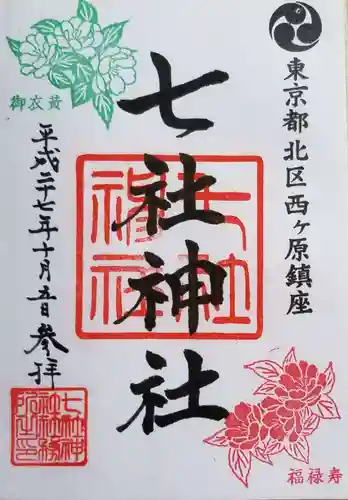 東京都北区西ヶ原鎮座
七社神社
御衣黄
平成二十七年十月五日参拝
福禄寿
七社神社